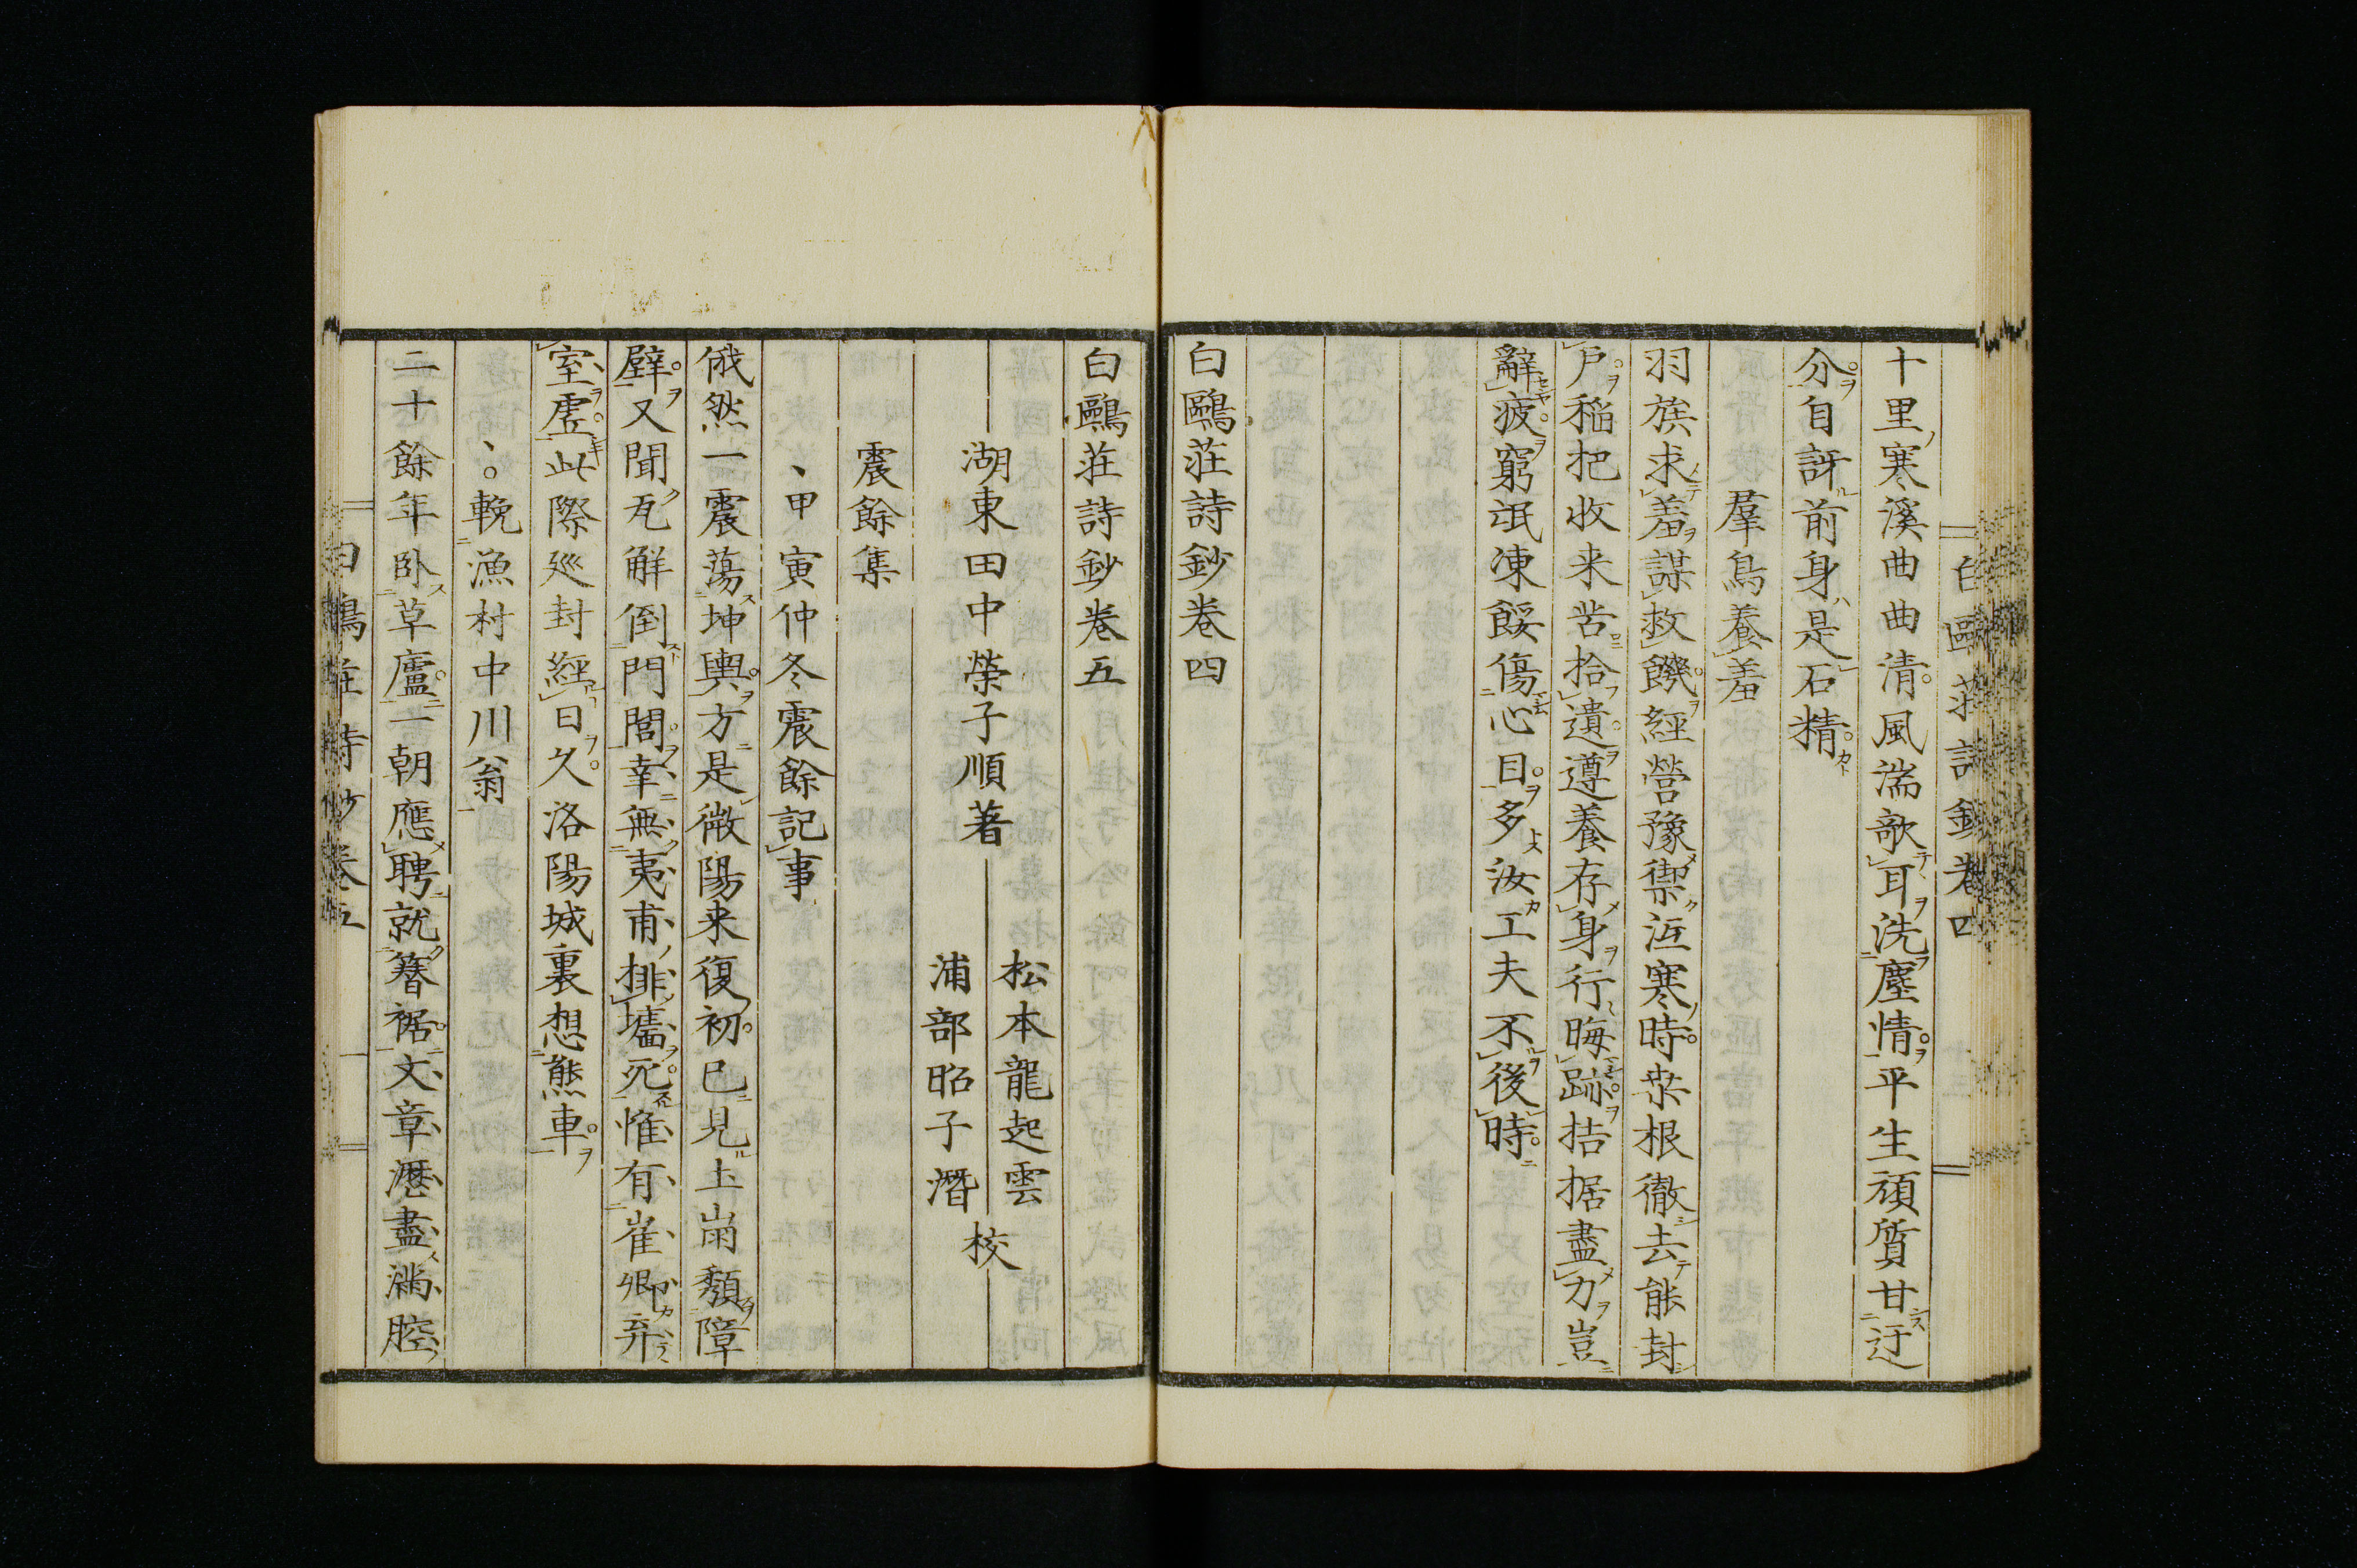 白鷗莊詩鈔卷四
十里寒溪曲曲清風湍歌耳洗塵情平生頑質甘迂
分自訝前身是石精
羣鳥養羞
羽族求羞謀救饑經營豫禦沍寒時桒根徹去能封
戶稲把收来苦拾遺遵養存身行晦跡拮据盡力豈
辭疲窮氓凍餒傷心目多汝工夫不後時
白鷗莊詩鈔卷四
白鷗莊詩鈔卷五
松本龍起雲
湖東田中榮子順著
校
浦部昭子潛
震餘集
甲寅仲冬震餘記事
俄然一震蕩坤輿方是微陽来復初已見土崩頽障
壁又聞瓦解倒門閭幸無夷甫排墻死惟有崔卿弃
室虛此際廵封經日久洛陽城裏想熊車
輓漁村中川翁
二十餘年卧草廬一朝應聘就簪裾文章瀝盡滿腔
白鷗莊詩鈔卷五